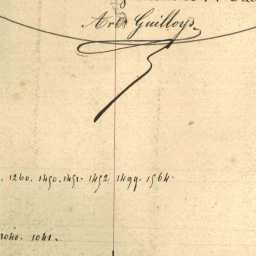 Ard Guilloys
. 1260. 1450. 1451. 1452. 1499. 1564.
1040. 1041.